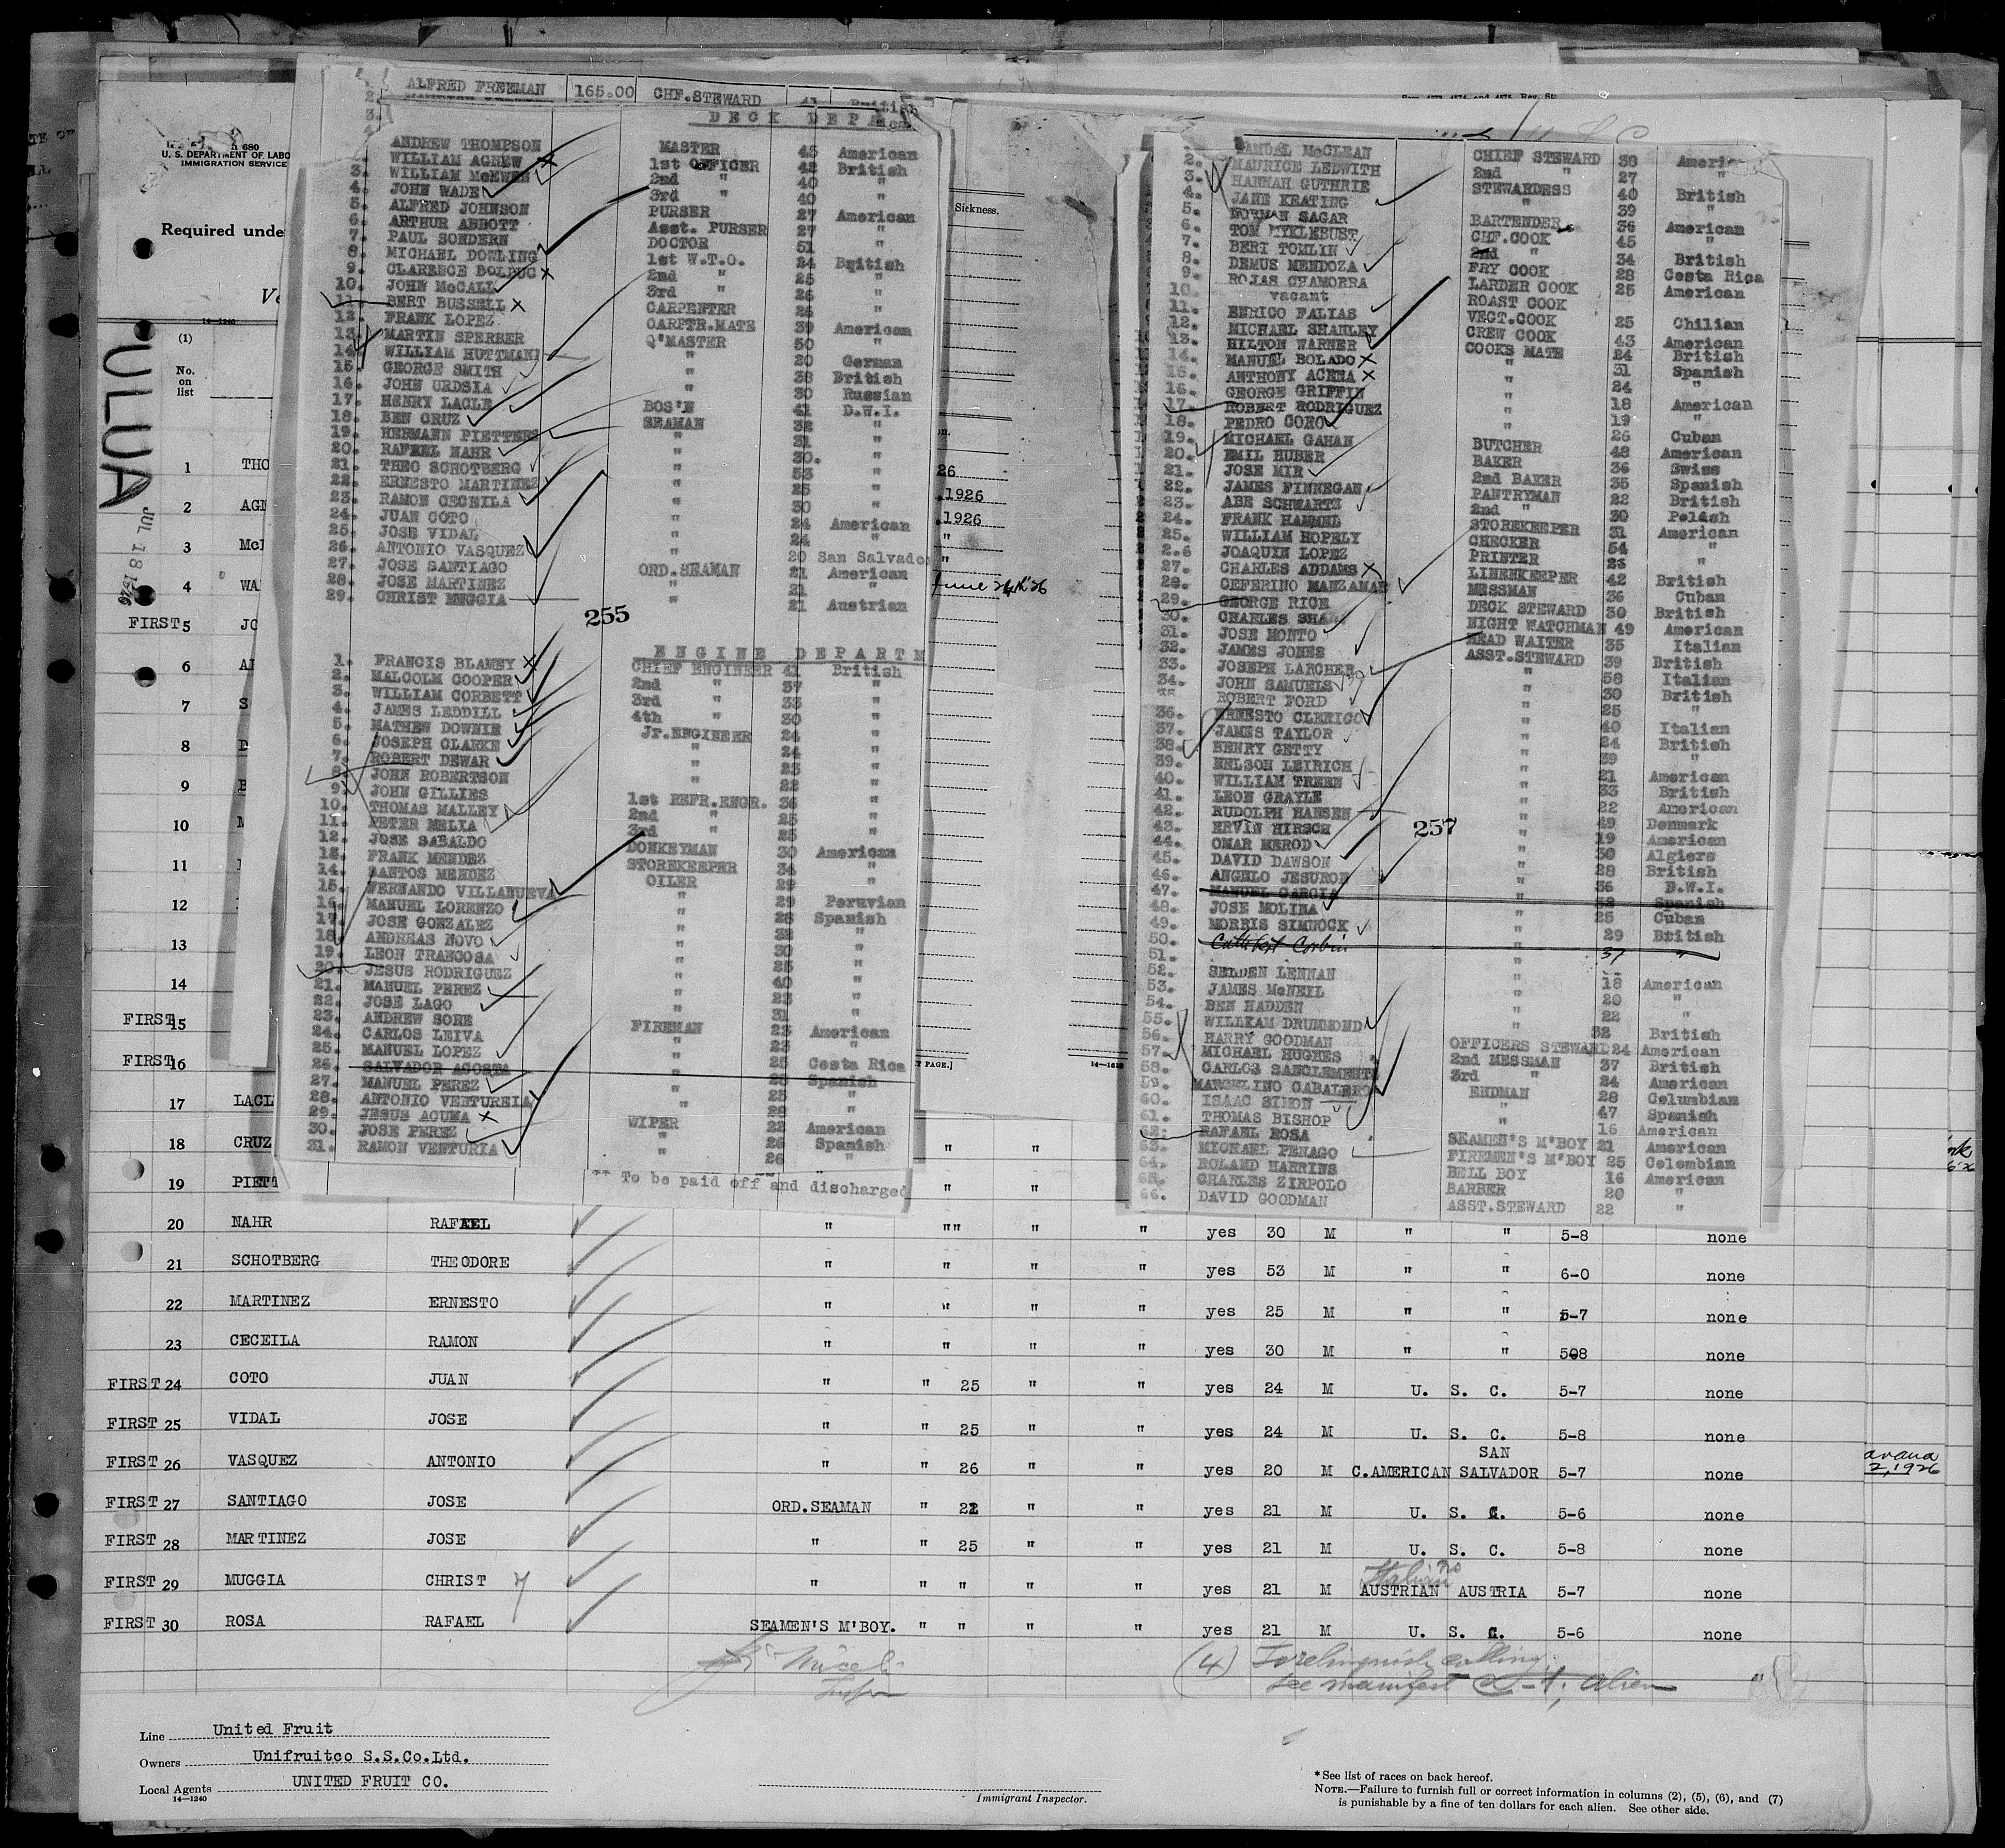 ULUA
JUL 18 1926
680
U. S. DEPARTMENT OF LABO
IMMIGRATION SERVICE
Required unde
14—1240
(1)
No.
on
list
1 THO
2 AGN
3 McE
4 WA
FIRST 5 JO
6 AB
7 S
8 D
9 B
10 M
11
12
13
14
FIRST 15
FIRST 16
17 LACL
18 CRUZ
19 PIETT
ALFRED FREEMAN 165.00 CHF.STEWARD 41 British
DECK DEPA
ANDREW THOMPSON MASTER 45 American
WILLIAM AGNEW 1st OFFICER 42 British
3. WILLIAM McEWEN 2nd " 40 "
4. JOHN WADE 3rd " 40 "
5. ALFRED JOHNSON PURSER 27 American
6. ARTHUR ABBOTT Asst. PURSER 27 "
7. PAUL SONDERN DOCTOR 51 "
8. MICHAEL DOWLING 1st W.T.O. 24 British
9. CLARENCE BOLDUC 2nd " 25 "
10. JOHN McCALL 3rd " 26 "
11. BERT BUSSELL CARPENTER 26 "
12. FRANK LOPEZ CARPTR.MATE 39 American
13. MARTIN SPERBER Q'MASTER 50 "
14. WILLIAM HUTTMANN " 20 German
15. GEORGE SMITH " 38 British
16. JOHN URDSIA " 30 Russian
17. HENRY LACLE BOS'N 41 D.W.I.
18. BEN CRUZ SEAMAN 32 "
19. HERMANN PIETTERS " 31 "
20. RAFAEL NAHR " 30. "
21. THEO SCHOTBERG " 53 "
22. ERNESTO MARTINEZ " 25 "
23. RAMON CECEILA " 30 "
24. JUAN COTO " 24 American
25. JOSE VIDAL " 24 "
26. ANTONIO VASQUEZ " 20 San Salvado
27. JOSE SANTIAGO ORD.SEAMAN 21 American
28. JOSE MARTINEZ " 21 "
29. CHRIST MUGGIA " 21 Austrian
255
ENGINE DEPARTM
1. FRANCIS BLAMEY CHIEF ENGINEER 41 British
2. MALCOLM COOPER 2nd " 37 "
3. WILLIAM CORBETT 3rd " 33 "
4. JAMES LEDDILL 4th " 30 "
5. MATHEW DOWNIE Jr.ENGINEER 24 "
6. JOSEPH CLARKE " 24 "
7. ROBERT DEWAR " 23 "
8. JOHN ROBERTSON " 22 "
9. JOHN GILLIES 1st REFR.ENGR. 36 "
10. THOMAS MALLEY 2nd " 25 "
11. PETER MELIA 3rd " 25 "
12. JOSE SABALDO DONKEYMAN 30 American
13. FRANK MENDEZ STOREKEEPER 34 "
14. SANTOS MENDEZ OILER 29 "
15. FERNANDO VILLANUEVA " 29 Peruvian
16. MANUEL LORENZO " 28 Spanish
17. JOSE GONZALEZ " 32 "
18. ANDREAS NOVO " 30 "
19. LEON TRANCOSA " 25 "
20. JESUS RODRIGUEZ " 40 "
21. MANUEL PEREZ " 23 "
22. JOSE LAGO " 31 "
23. ANDREW SORE FIREMAN 23 American
24. CARLOS LEIVA " 23 "
25. MANUEL LOPEZ " 25 Costa Rica
26. SALVADOR ACOSTA " 28 Spanish
27. MANUEL PEREZ " 25 "
28. ANTONIO VENTUREIA " 28 "
29. JESUS ACUMA WIPER 22 American
30. JOSE PEREZ " 26 Spanish
31. RAMON VENTURIA " 26 "
** To be paid off and discharged
Sickness.
26
1926
1926
June 24th 26
T PAGE.]
SAMUEL McCLEAN CHIEF STEWARD 38 Americ
2. MAURICE LEDWITH 2nd " 27 "
3. HANNAH GUTHRIE STEWARDESS 40 British
4. JANE KEATING " 39 "
5. NORMAN SAGAR BARTENDER 36 American
6. TOM MYKLEBUST CHF.COOK 45 "
7. BERT TOMLIN 2nd " 34 British
8. DEMUS MENDOZA FRY COOK 28 Costa Rica
9. ROJAS CHAMORRA LARDER COOK 25 American
10. vacant ROAST COOK
11. ENRICO FALIAS VEGT.COOK 25 Chilian
12. MICHAEL SHANLEY CREW COOK 43 American
13. HILTON WARNER COOKS MATE 24 British
14. MANUEL BOLADO " 31 Spanish
15. ANTHONY ACENA " 24 "
16. GEORGE GRIFFIN " 18 American
17. ROBERT RODRIGUEZ " 19 "
18. PEDRO CORO " 26 Cuban
19. MICHAEL GAHAN BUTCHER 48 American
20. EMIL HUBER BAKER 36 Swiss
21. JOSE MIR 2nd BAKER 35 Spanish
22. JAMES FINNEGAN PANTRYMAN 22 British
23. ABE SCHWARTZ 2nd " 30 Polish
24. FRANK HAMMEL STOREKEEPER 31 American
25. WILLIAM HOPELY CHECKER 54 "
2.6 JOAQUIN LOPEZ PRINTER 23 "
27. CHARLES ADDAMS LINENKEEPER 42 British
28. CEFERINO MANZANAR MESSMAN 36 Cuban
29. GEORGE RICE DECK STEWARD 30 British
30. CHARLES SHA NIGHT WATCHMAN 49 American
31. JOSE MONTO HEAD WAITER 35 Italian
32. JAMES JONES ASST.STEWARD 39 British
33. JOSEPH LARCHER " 58 Italian
34. JOHN SAMUELS " 30 British
35. ROBERT FORD " 25 "
36. ERNESTO CLERICO " 40 Italian
37. JAMES TAYLOR " 24 British
38. HENRY GETTY " 39 "
39. NELSON LEIRICH " 21 American
40. WILLIAM TREEN " 33 British
41. LEON GRAYLE " 22 American
42. RUDOLPH HANSEN " 49 Denmark
43. ERVIN HIRSCH " 19 American
44. OMAR MEROD " 30 Algiers
45. DAVID DAWSON " 28 British
46. ANGELO JESURON " 36 D.W.I.
47. MANUEL GARCIA " 52 Spanish
48. JOSE MOLINA " 25 Cuban
49. MORRIS SIMNOCK " 29 British
50. Cuthbert Corbin 37 "
51.
52. SELDEN LENNAN " 18 American
53. JAMES McNEIL " 20 "
54. BEN HADDEN " 22 "
55. WILLIAM DRUMMOND " 32 British
56. HARRY GOODMAN OFFICERS STEWARD 24 American
57. MICHAEL HUGHES 2nd MESSMAN 37 British
58. CARLOS SANCLEMENTE 3rd " 24 American
59. MARCELINO CABALERO ENDMAN 28 Columbian
60. ISAAC SIMON " 47 Spanish
61. THOMAS BISHOP " 16 American
62. RAFAEL ROSA SEAMEN'S M'BOY 21 American
63. MICHAEL PENAGO FIREMEN'S M'BOY 25 Colombian
64. ROLAND HARRINS BELL BOY 16 American
65. CHARLES ZIRPOLO BARBER 20 "
66. DAVID GOODMAN ASST.STEWARD 22 "
257
20 NAHR RAFAEL " "" " " yes 30 M " " 5-8 none
21 SCHOTBERG THEODORE " " " " yes 53 M " " 6-0 none
22 MARTINEZ ERNESTO " " " " yes 25 M " " 5-7 none
23 CECEILA RAMON " " " " yes 30 M " " 508 none
FIRST 24 COTO JUAN " " 25 " " yes 24 M U. S. C. 5-7 none
FIRST 25 VIDAL JOSE " " 25 " " yes 24 M U. S. C. 5-8 none
FIRST 26 VASQUEZ ANTONIO " " 26 " " yes 20 M C.AMERICAN SAN SALVADOR 5-7 none
FIRST 27 SANTIAGO JOSE ORD.SEAMAN " 22 " " yes 21 M U. S. C. 5-6 none
FIRST 28 MARTINEZ JOSE " " 25 " " yes 21 M U. S. C. 5-8 none
FIRST 29 MUGGIA CHRIST " " " " " yes 21 M Italian no AUSTRIAN AUSTRIA 5-7 none
FIRST 30 ROSA RAFAEL SEAMEN'S M'BOY. " " " " yes 21 M U. S. C. 5-6 none
(4) To relinquish calling.
See manifest A-1, alien
Line United Fruit
Owners Unifruitco S.S.Co.Ltd.
Local Agents UNITED FRUIT CO.
14—1240
Immigrant Inspector.
*See list of races on back hereof.
NOTE.—Failure to furnish full or correct information in columns (2), (5), (6), and (7)
is punishable by a fine of ten dollars for each alien. See other side.
avana
2, 1926